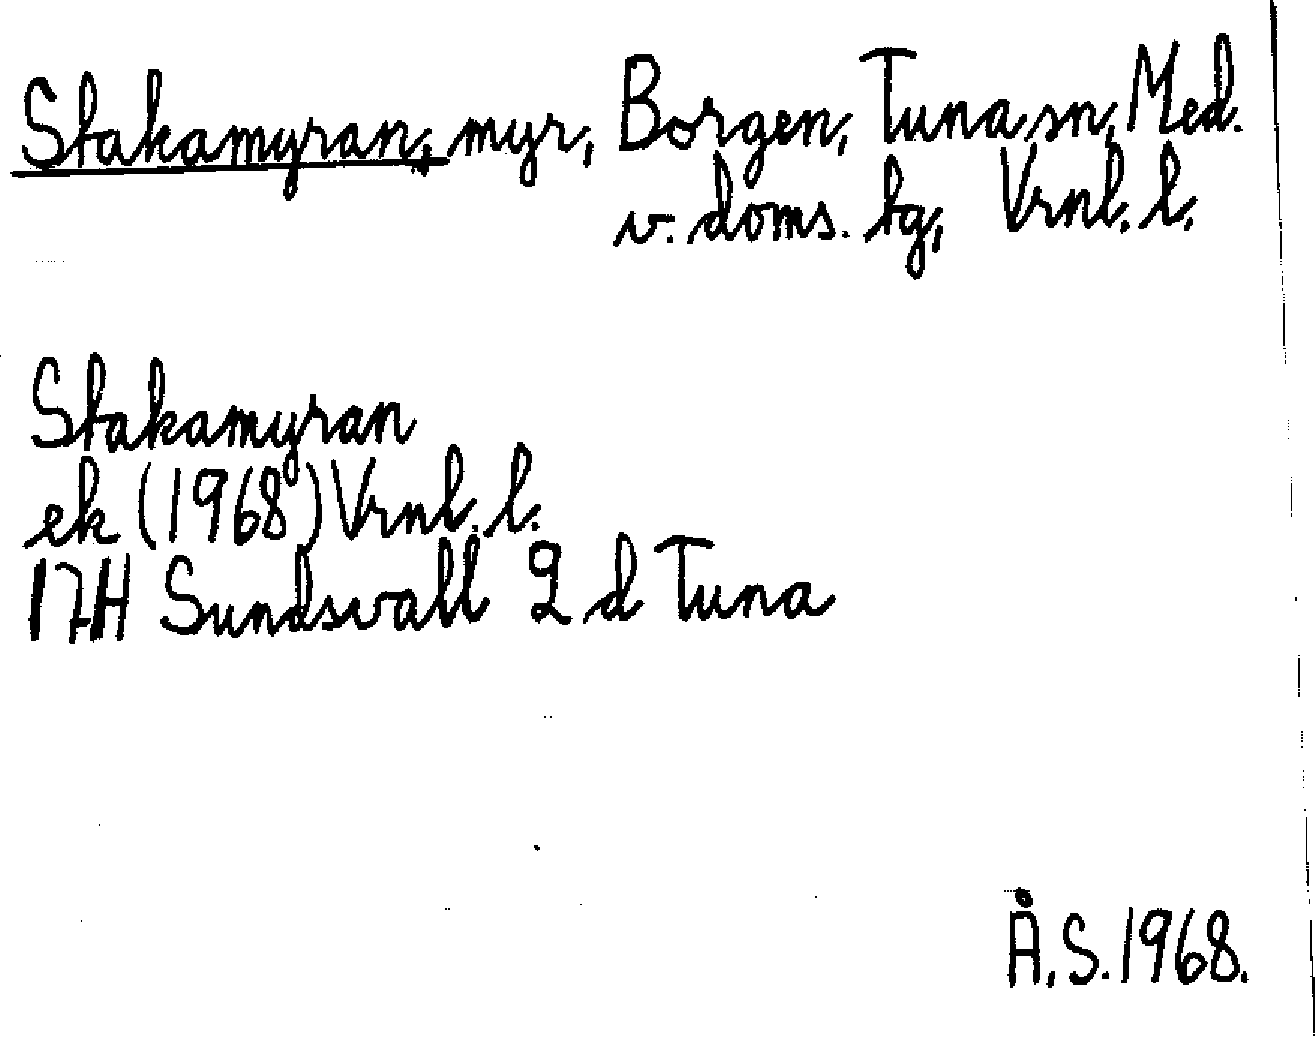 Stakamyran, myr, Borgen, Tuna sn, Med.
v. doms. tg, Vrnl. l.
Stakamyran
ek (1968) Vrnl. l.
17H Sundsvall 2 d Tuna
Å.S. 1968.